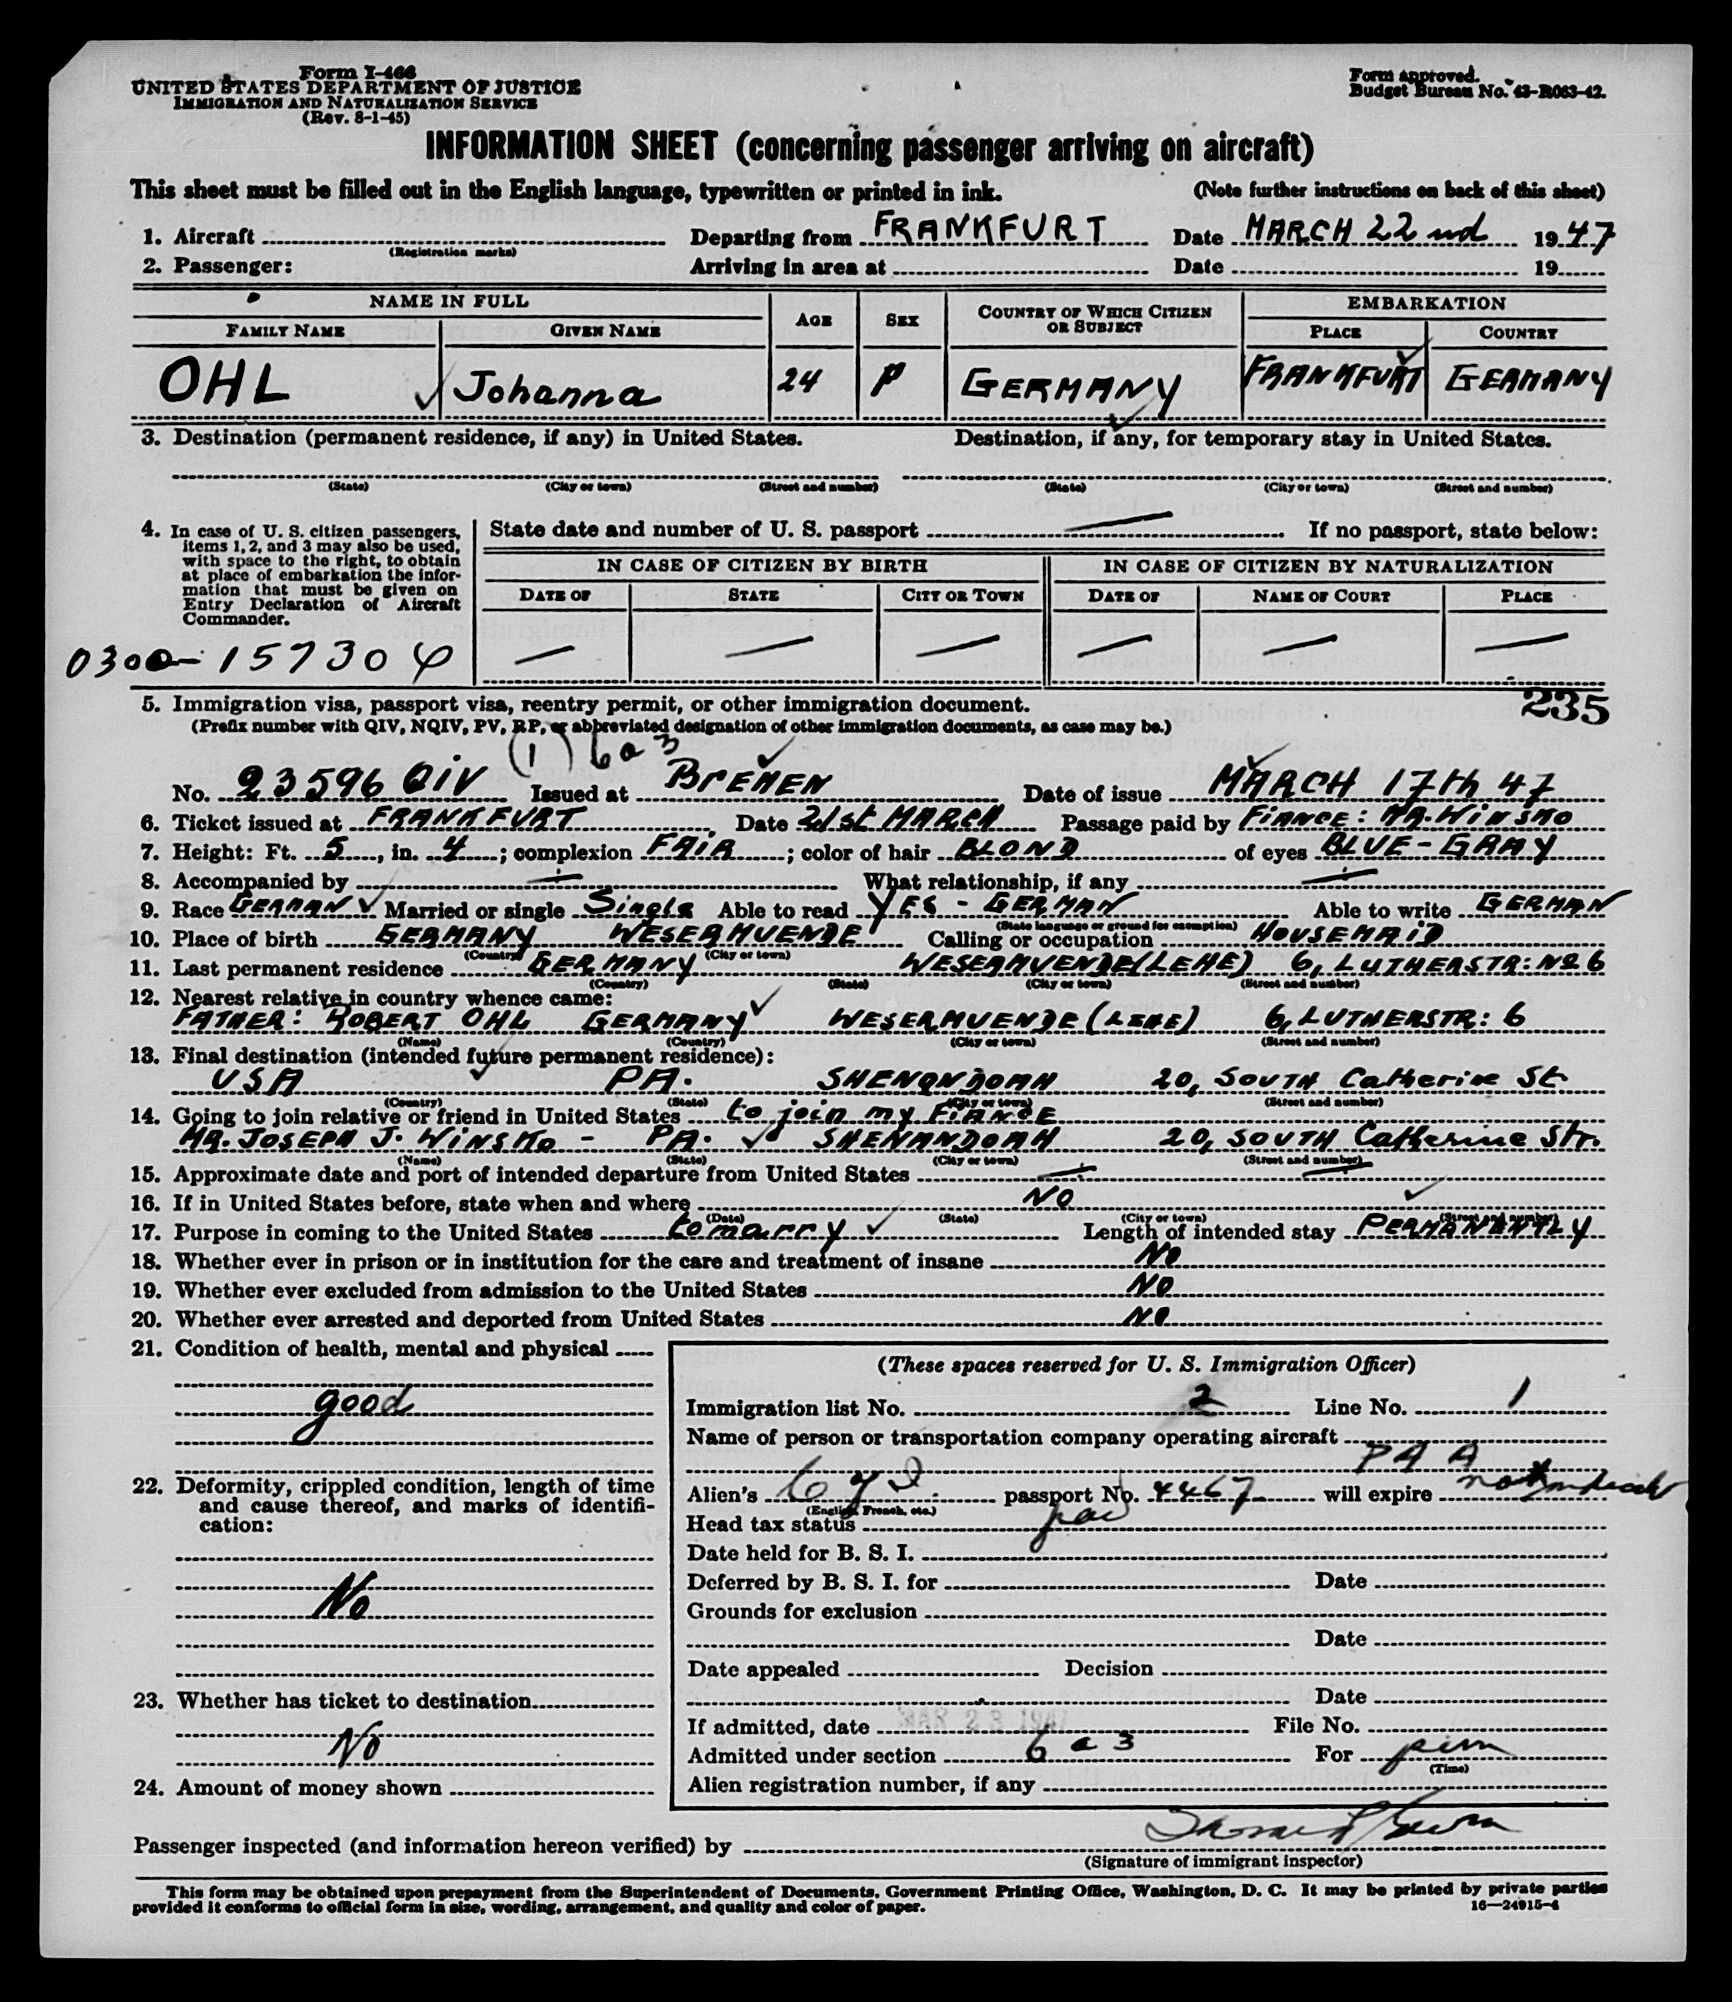 Form I-466
UNITED STATES DEPARTMENT OF JUSTICE
IMMIGRATION AND NATURALIZATION SERVICE
(Rev. 8-1-45)
Form approved.
Budget Bureau No. 43-R063-42.
INFORMATION SHEET (concerning passenger arriving on aircraft)
This sheet must be filled out in the English language, typewritten or printed in ink. (Note further instructions on back of this sheet)
1. Aircraft Departing from FRANKFURT Date MARCH 22nd 1947
(Registration marks)
2. Passenger: Arriving in area at Date 19
NAME IN FULL AGE SEX COUNTRY OF WHICH CITIZEN OR SUBJECT EMBARKATION
FAMILY NAME GIVEN NAME PLACE COUNTRY
OHL Johanna 24 GERMANY FRANKFURT GERMANY
3. Destination (permanent residence, if any) in United States. Destination, if any, for temporary stay in United States.
(State) (City or town) (Street and number) (State) (City or town) (Street and number)
4. In case of U. S. citizen passengers, items 1, 2, and 3 may also be used, with space to the right, to obtain at place of embarkation the information that must be given on Entry Declaration of Aircraft Commander.
State date and number of U. S. passport — If no passport, state below:
IN CASE OF CITIZEN BY BIRTH IN CASE OF CITIZEN BY NATURALIZATION
DATE OF STATE CITY OR TOWN DATE OF NAME OF COURT PLACE
— — — — — —
0300-157304
235
5. Immigration visa, passport visa, reentry permit, or other immigration document.
(Prefix number with QIV, NQIV, PV, RP, or abbreviated designation of other immigration documents, as case may be.)
(1) 6a3
No. 23596 QIV Issued at BREMEN Date of issue MARCH 17th 47
6. Ticket issued at FRANKFURT Date 21st MARCH Passage paid by FIANCE: MR. WINSKO
7. Height: Ft. 5, in. 4; complexion FAIR; color of hair BLOND of eyes BLUE-GRAY
8. Accompanied by — What relationship, if any —
9. Race GERMAN Married or single Single Able to read YES - GERMAN Able to write GERMAN
(State language or ground for exemption)
10. Place of birth GERMANY WESERMUENDE Calling or occupation HOUSEMAID
(Country) (City or town)
11. Last permanent residence GERMANY WESERMUENDE (LEHE) 6, LUTHERSTR: No 6
(Country) (State) (City or town) (Street and number)
12. Nearest relative in country whence came:
FATHER: ROBERT OHL GERMANY WESERMUENDE (LEHE) 6, LUTHERSTR: 6
(Name) (Country) (City or town) (Street and number)
13. Final destination (intended future permanent residence):
USA PA. SHENANDOAH 20, SOUTH Catherine St.
(Country) (State) (City or town) (Street and number)
14. Going to join relative or friend in United States to join my FIANCE
MR. JOSEPH J. WINSKO - PA. SHENANDOAH 20, SOUTH Catherine Str.
(Name) (State) (City or town) (Street and number)
15. Approximate date and port of intended departure from United States — —
16. If in United States before, state when and where NO
(Date) (State) (City or town) (Street and number)
17. Purpose in coming to the United States to marry Length of intended stay PERMANENTLY
18. Whether ever in prison or in institution for the care and treatment of insane No
19. Whether ever excluded from admission to the United States NO
20. Whether ever arrested and deported from United States NO
21. Condition of health, mental and physical
good
22. Deformity, crippled condition, length of time and cause thereof, and marks of identification:
No
23. Whether has ticket to destination
No
24. Amount of money shown
(These spaces reserved for U. S. Immigration Officer)
Immigration list No. 2 Line No. 1
Name of person or transportation company operating aircraft
P A A
Alien's passport No. 4467 will expire
(English, French, etc.)
Head tax status
Date held for B. S. I.
Deferred by B. S. I. for Date
Grounds for exclusion
Date
Date appealed Decision
Date
If admitted, date MAR 23 1947 File No.
Admitted under section 6 a 3 For
(Time)
Alien registration number, if any
Passenger inspected (and information hereon verified) by
(Signature of immigrant inspector)
This form may be obtained upon prepayment from the Superintendent of Documents, Government Printing Office, Washington, D. C. It may be printed by private parties
provided it conforms to official form in size, wording, arrangement, and quality and color of paper.
16—24915-4